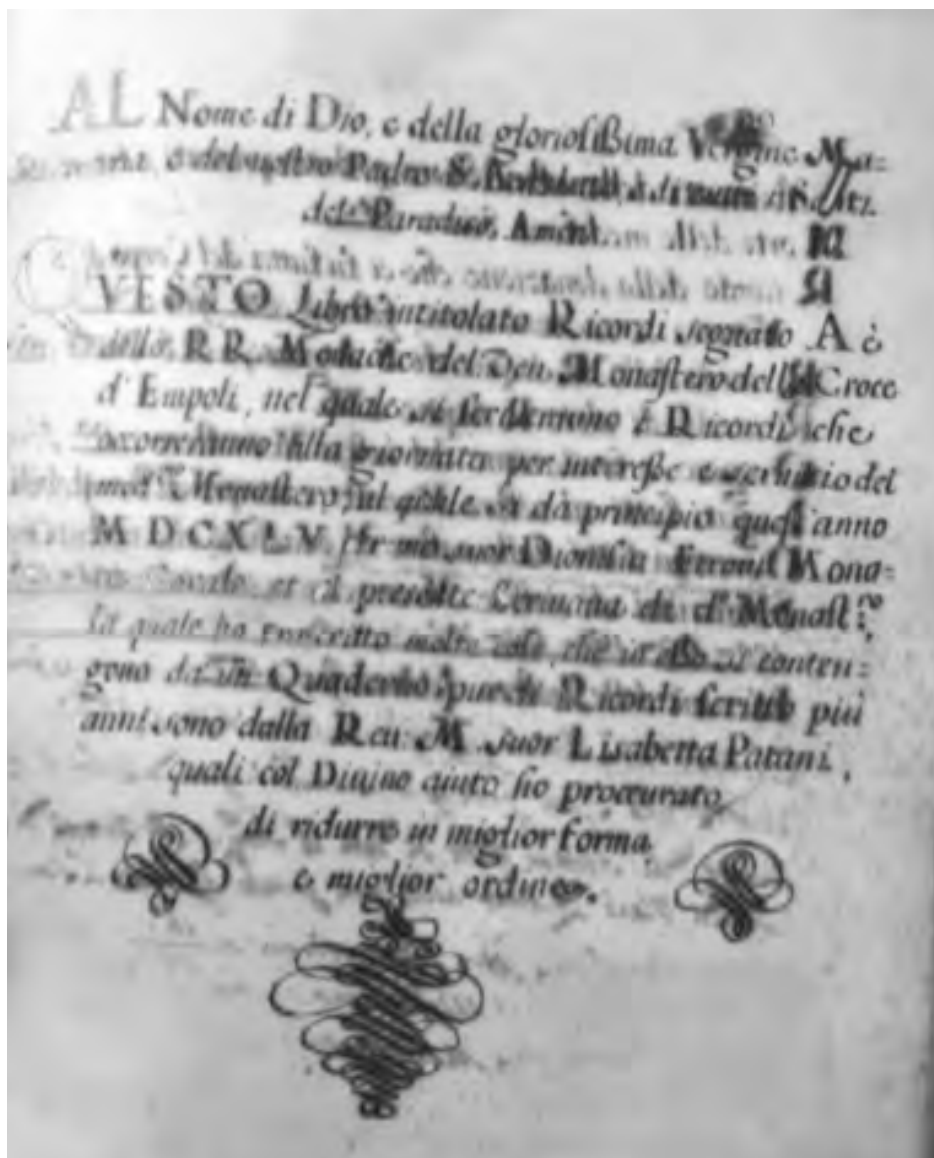 AL Nome di Dio, e della gloriosissima Vergine Ma=
e del nostro Padre S. Benedetto, e di tutti
del Paradiso, Amen.
QVESTO Libro intitolato Ricordi segnato A è
delle RR. Monache del Ven. Monastero della Croce
d'Empoli, nel quale si scriveranno è Ricordi che
occorreranno alla giornata per interesse e servitio del
med.º Monastero, al quale si dà principio quest'anno
MDCXLV. suor Dionisia Mona=
et al presente di d.º Monast.ro
la quale ho trascritto molte cose che in esso si conten=
gono da un Quaderno pure di Ricordi scritto più
anni sono dalla Reu. M. suor Lisabetta Patani,
quali col Diuino aiuto ho proccurato
di ridurre in miglior forma,
e miglior ordine.